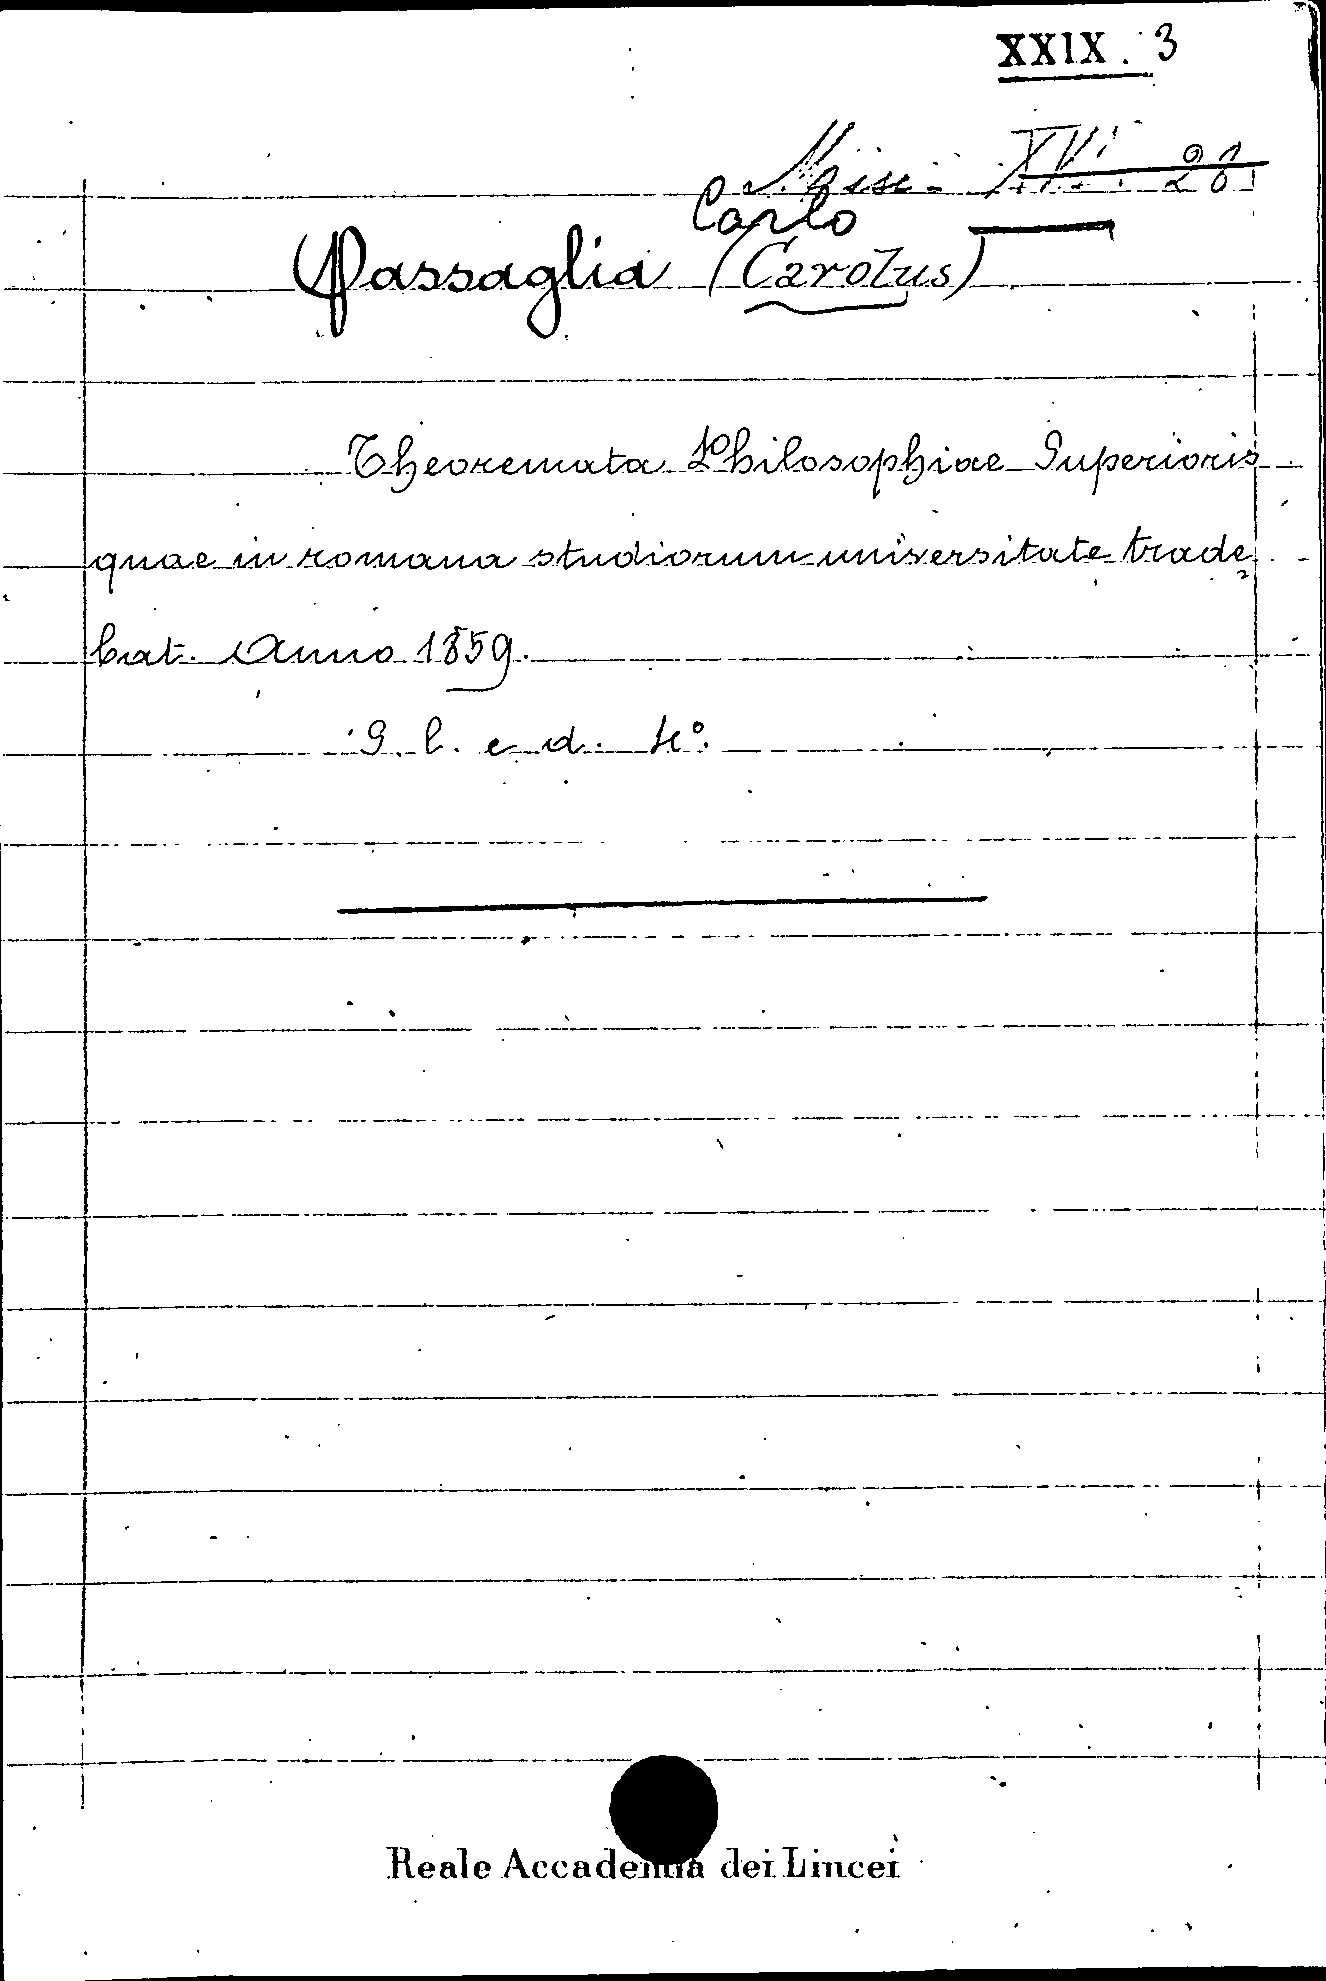 XXIX. 3
Misc. XVI. 21
Carlo
Passaglia (Carolus)
Theoremata Philosophiae Superioris
quae in romana studiorum universitate trade
bat. Anno 1859.
S. l. e d. 4°.
Reale Accademia dei Lincei